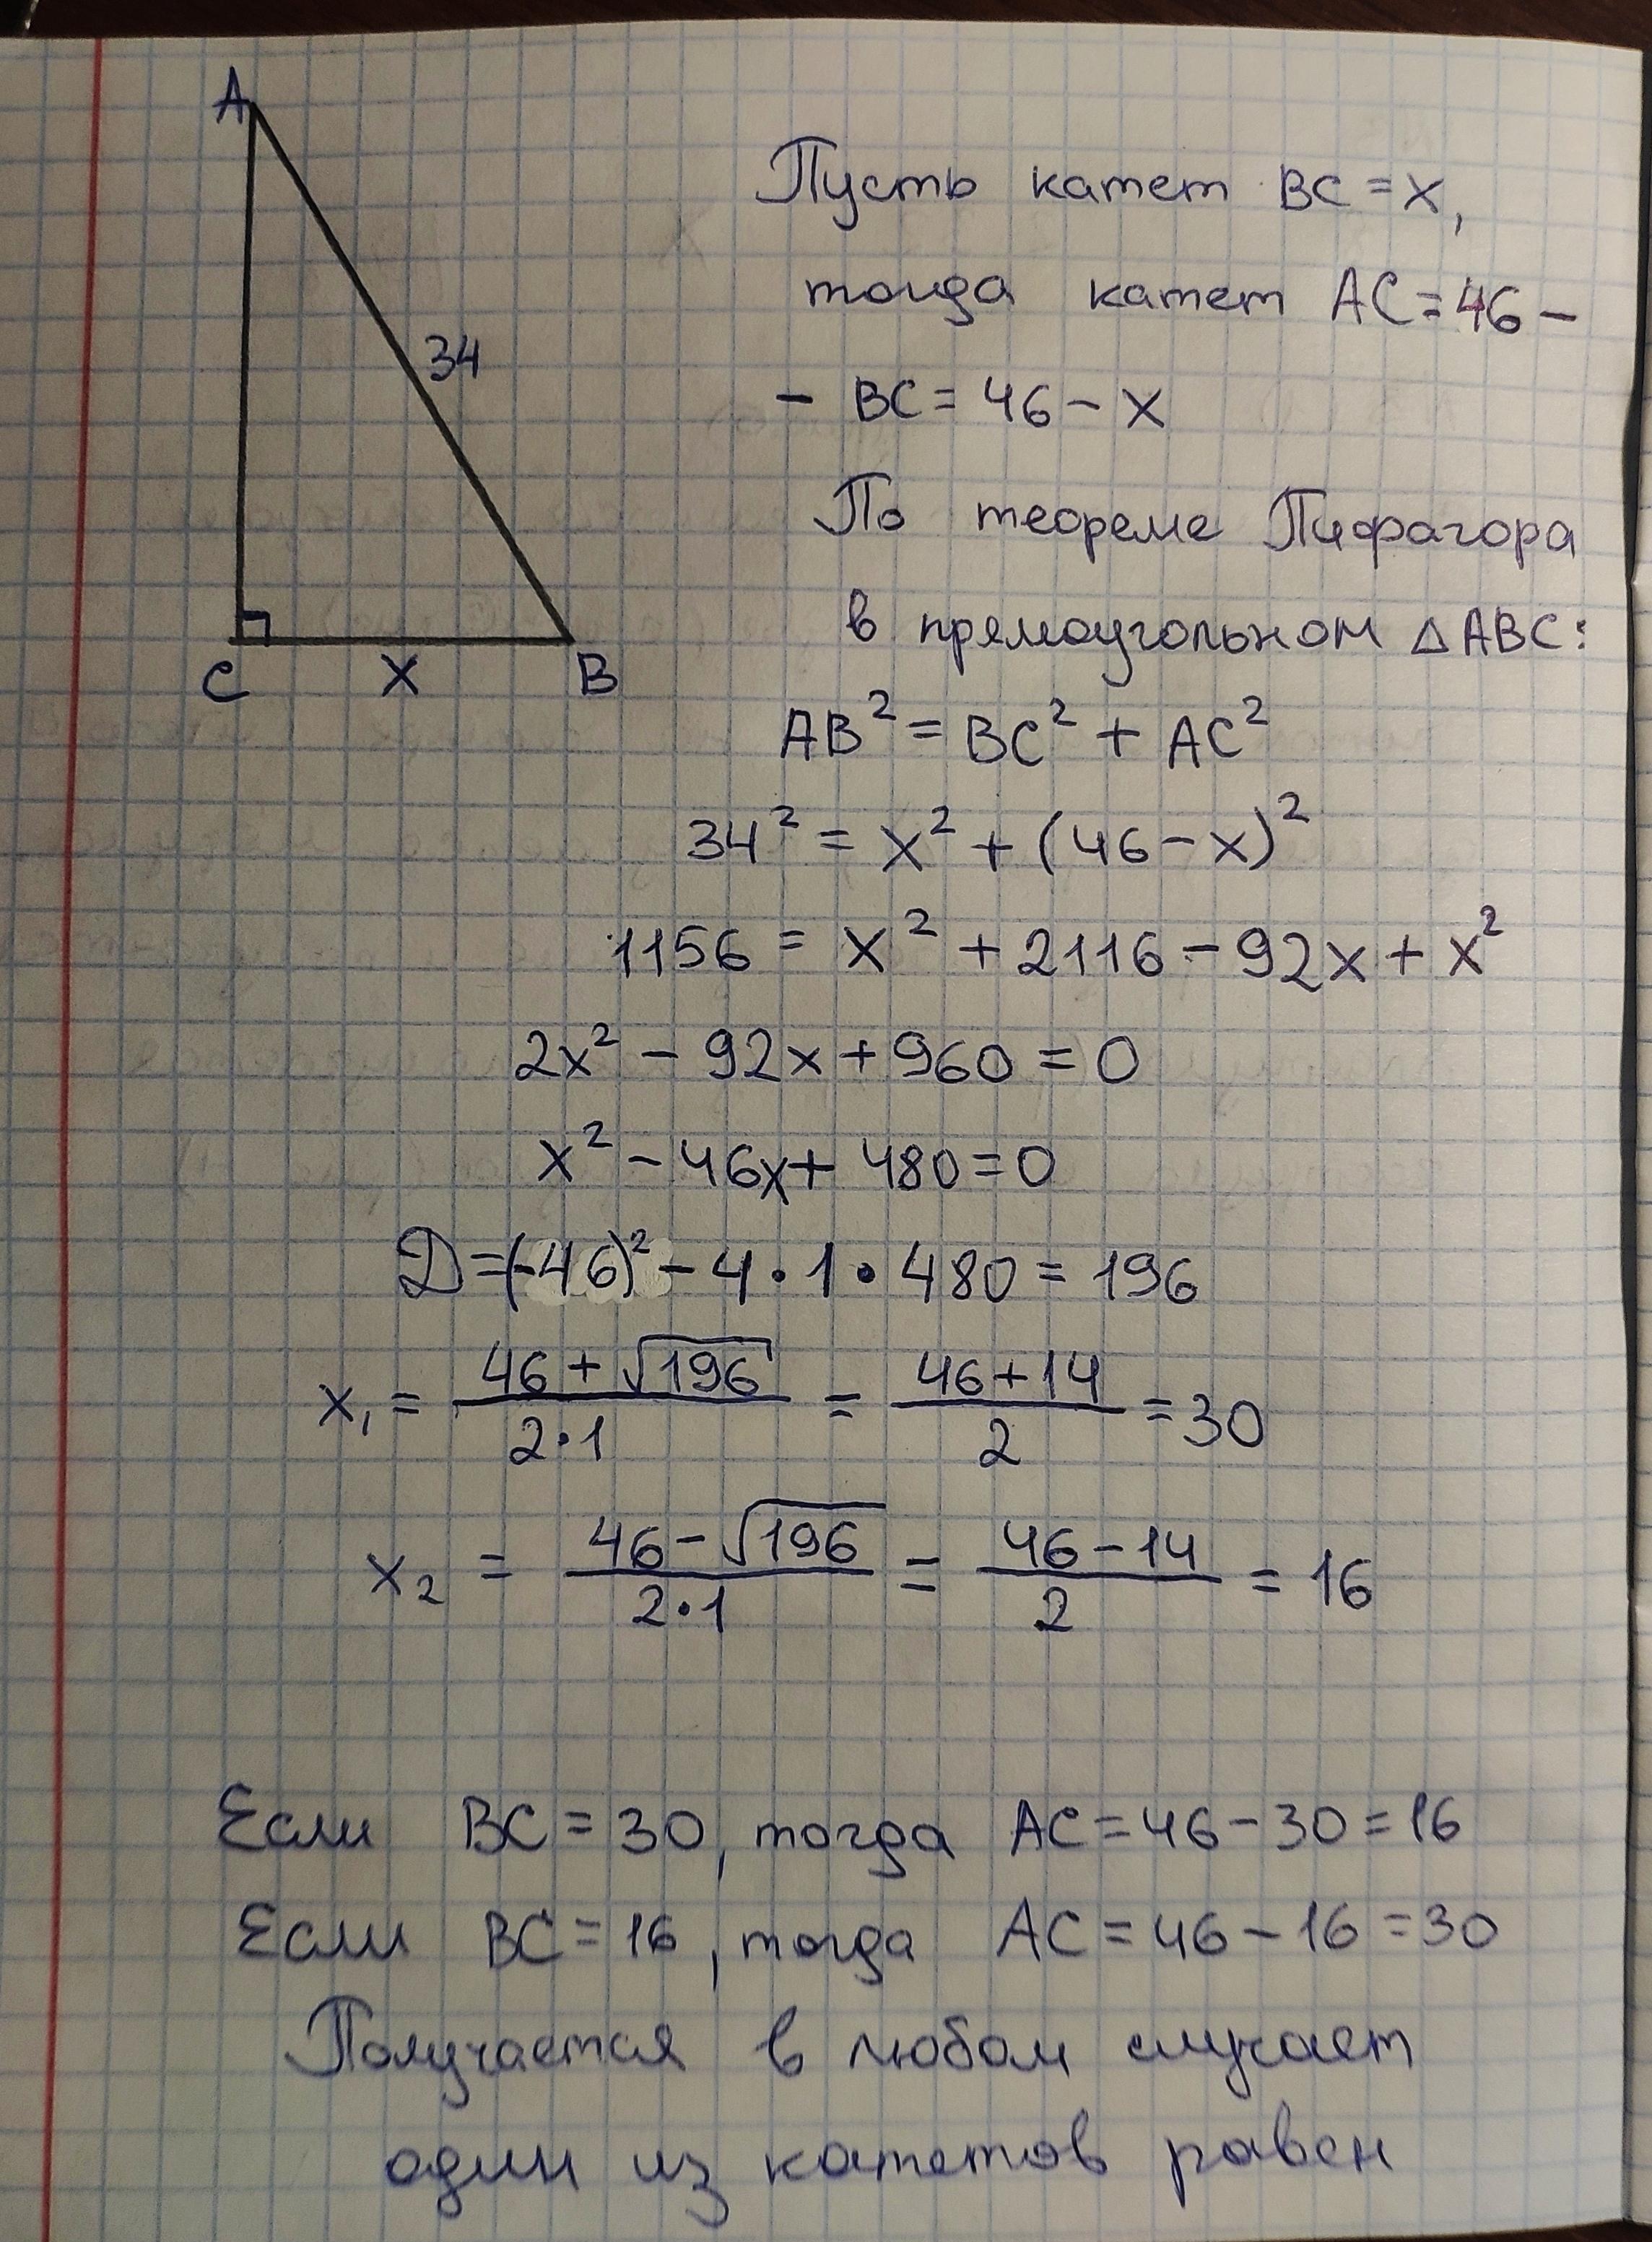 A
34
C
X
B
Пусть катет BC = x,
тогда катет AC = 46 -
- BC = 46 - x
По теореме Пифагора
в прямоугольном △ABC:
AB² = BC² + AC²
34² = x² + (46 - x)²
1156 = x² + 2116 - 92x + x²
2x² - 92x + 960 = 0
x² - 46x + 480 = 0
D = (-46)² - 4 • 1 • 480 = 196
x₁ = (46 + √196)/(2•1) = (46 + 14)/2 = 30
x₂ = (46 - √196)/(2•1) = (46 - 14)/2 = 16
Если BC = 30, тогда AC = 46 - 30 = 16
Если BC = 16, тогда AC = 46 - 16 = 30
Получается в любом случает
один из катетов равен